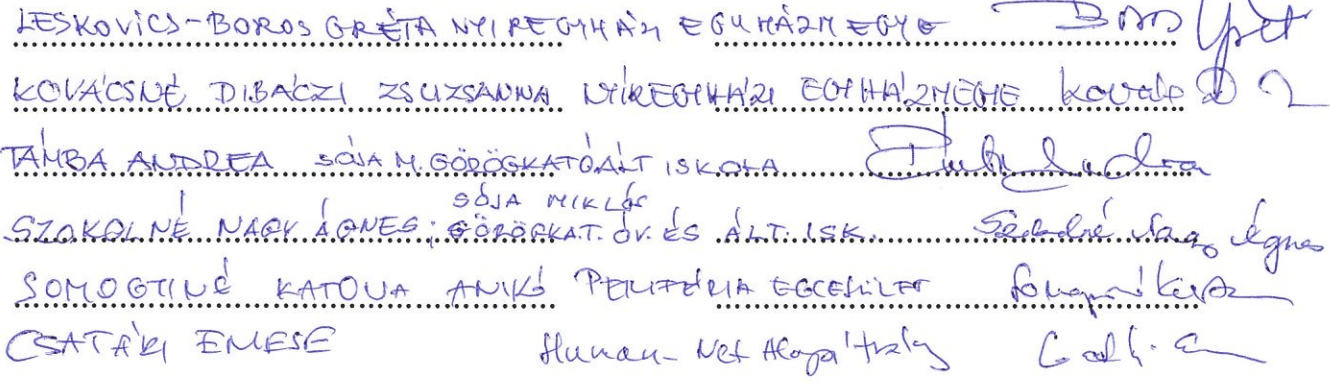 LESKOVICS-BOROS GRÉTA NYIREGYHÁZI EGYHÁZMEGYE Boros Grét
KOVÁCSNÉ DIBÁCZI ZSUZSANNA NYIREGYHÁZI EGYHÁZMEGYE Kovács D Z
TAMBA ANDREA SÓJA M. GÖRÖGKATÓ ÁLT ISKOLA
SÓJA MIKLÓS
SZOKOLNÉ NAGY ÁGNES; GÖRÖGKAT. ÓV. ÉS ÁLT. ISK. Szokolné Nagy Ágnes
SOMOGYINÉ KATONA ANIKÓ PERIFÉRIA EGYESÜLET
CSATÁRI EMESE Human-Net Alapítvány